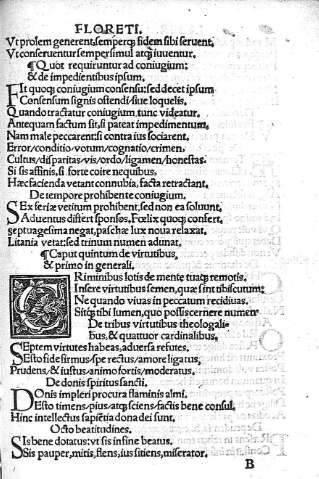 FLORETI.
Vt prolem generent, semperq; fidem sibi servent,
Vt conserventur semper simul atq; iuventur.
¶Quot requiruntur ad coniugium:
& de impedientibus ipsum.
Fit quoq; coniugium consensu: sed decet ipsum
Consensum signis ostendi sive loquelis.
Quando tractatur coniugium, tunc videatur.
Antequam factum sit, si pateat impedimentum,
Nam male peccarent: si contra ius sociarent.
Error/conditio/votum/cognatio/crimen.
Cultus/disparitas/vis/ordo/ligamen/honestas.
Si sis affinis, si forte coire nequibus.
Hæc facienda vetant connubia, facta retractant.
De tempore prohibente coniugium.
Sex seriæ vetitum prohibent, sed non ea solvunt,
Adventus differt sponsos, Fœlix quoq; confert,
septuagesima negat, paschæ lux nova relaxat.
Litania vetat: sed trinum numen adunat,
¶Caput quintum de virtutibus,
& primo in generali.
Criminibus lotis de mente tuaq; remotis.
Insere virtutibus semen, quæ sint tibi scutum:
Ne quando vivas in peccatum recidivas.
Sitq; tibi lumen, quo possis cernere numen
De tribus virtutibus theologali-
bus, & quattuor cardinalibus.
Septem virtutes habeas, adversa refutes.
Esto fide firmus/spe rectus/amore ligatus,
Prudens/& iustus/animo fortis/moderatus.
De donis spiritus sancti.
Donis impleri procura flaminis almi.
Esto timens/pius/atq; sciens/factis bene consul.
Hinc intellectus sapiẽtia dona dei sunt.
Octo beatitudines.
Sis bene dotatus: vt sis in fine beatus.
Sis pauper, mitis, flens, ius sitiens, miserator.
B